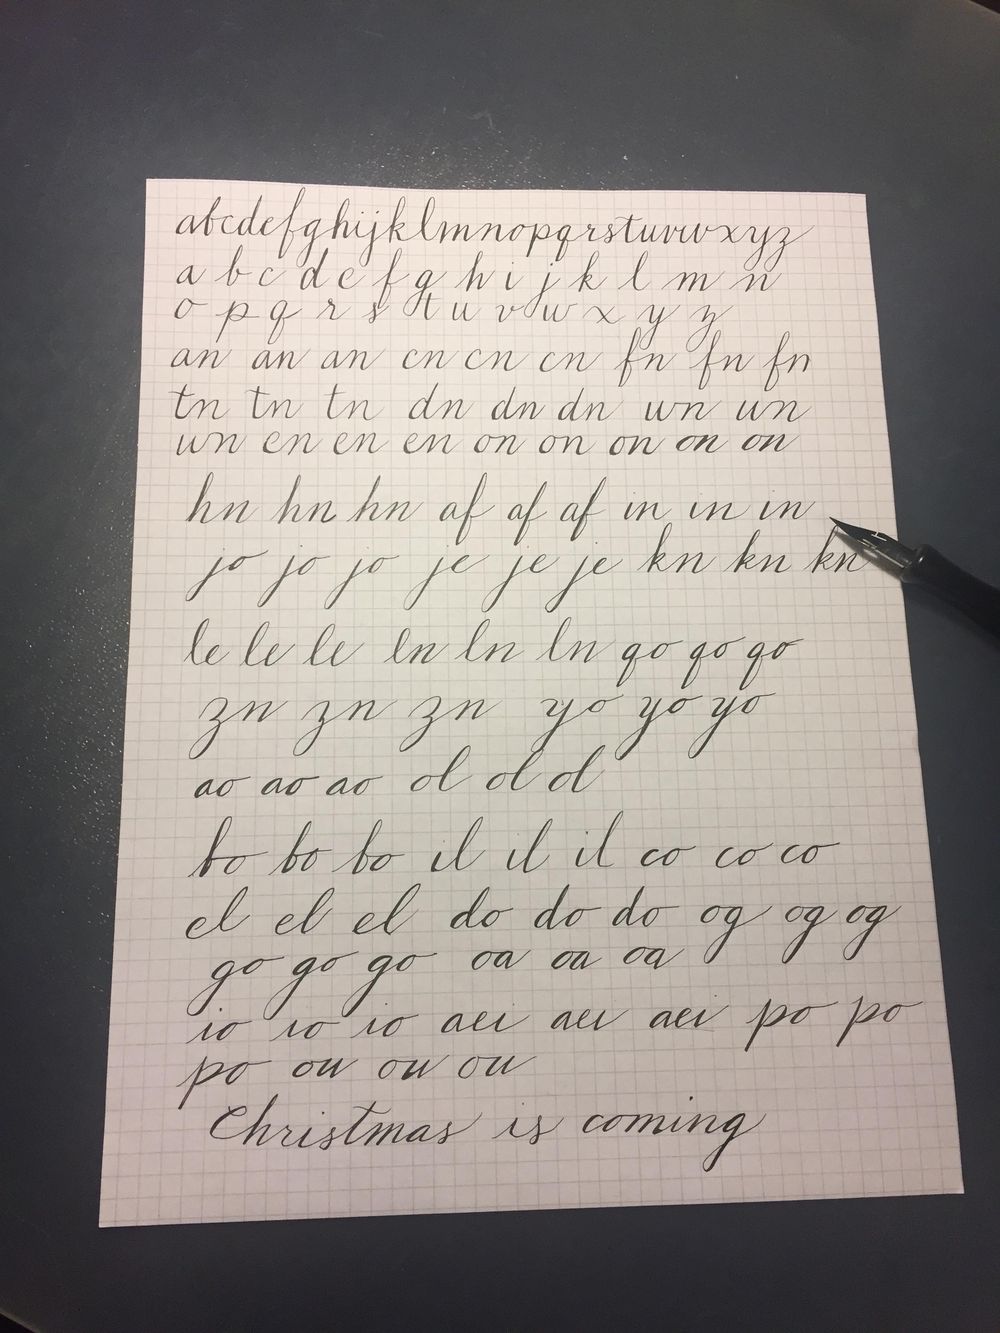 abcdefghijklmnopqrstuvwxyz
a b c d e f g h i j k l m n
o p q r s t u v w x y z
an an an cn cn cn fn fn fn
tn tn tn dn dn dn wn wn
wn en en en on on on on on
hn hn hn af af af in in in
jo jo jo je je je kn kn kn
le le le ln ln ln qo qo qo
zn zn zn yo yo yo
ao ao ao ol ol ol
bo bo bo il il il co co co
el el el do do do og og og
go go go oa oa oa
io io io aei aei aei po po
po ou ou ou
Christmas is coming